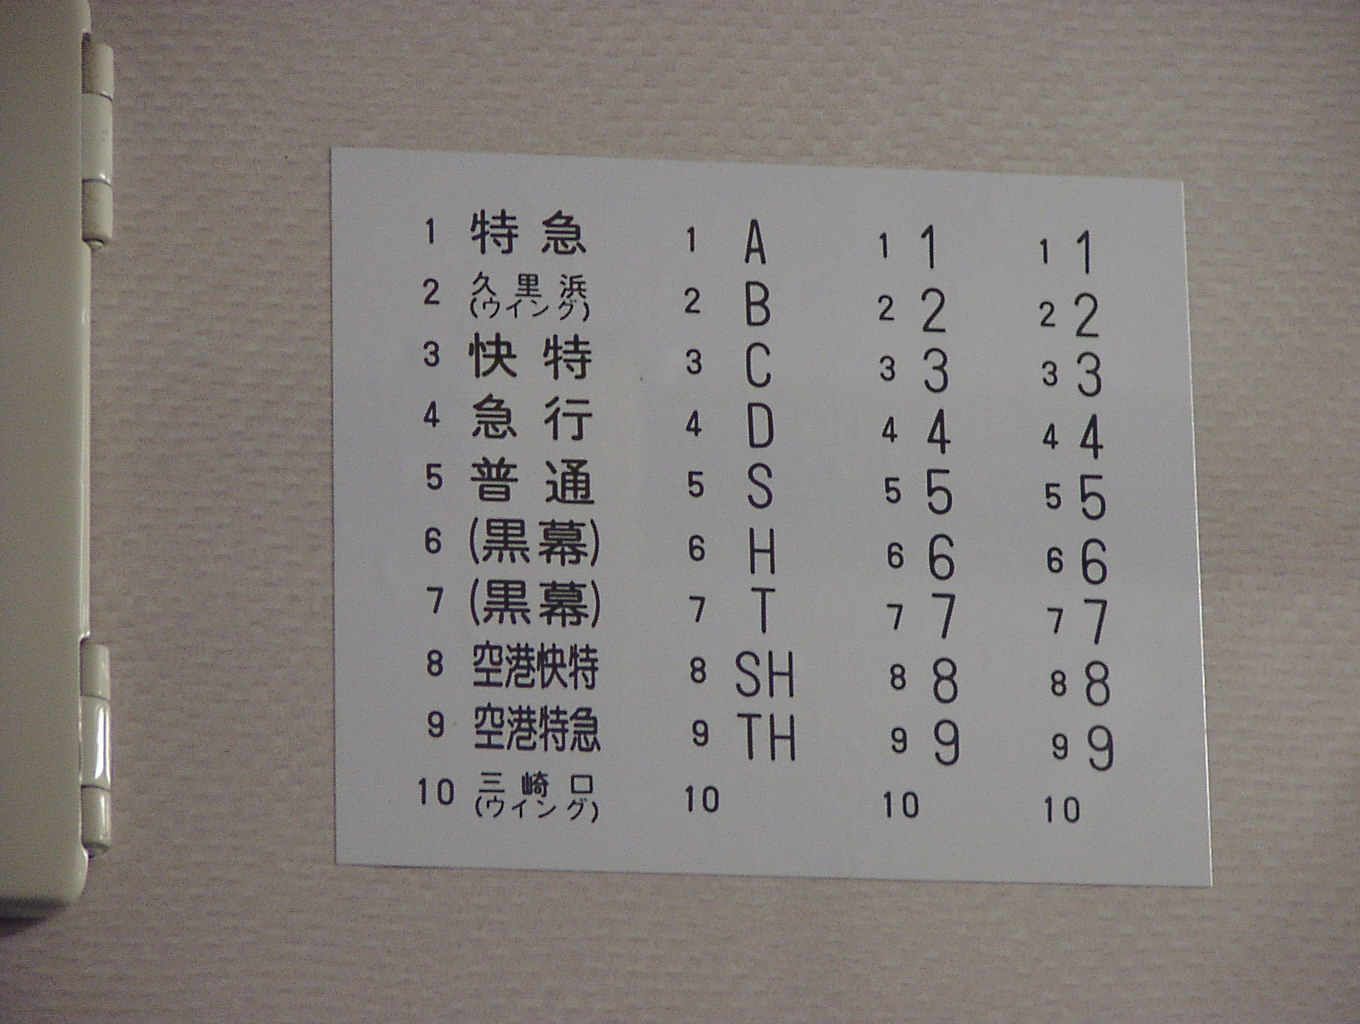 1 特急 1 A 1 1 1 1
2 久里浜 (ウイング) 2 B 2 2 2 2
3 快特 3 C 3 3 3 3
4 急行 4 D 4 4 4 4
5 普通 5 S 5 5 5 5
6 (黒幕) 6 H 6 6 6 6
7 (黒幕) 7 T 7 7 7 7
8 空港快特 8 SH 8 8 8 8
9 空港特急 9 TH 9 9 9 9
10 三崎口 (ウイング) 10 10 10